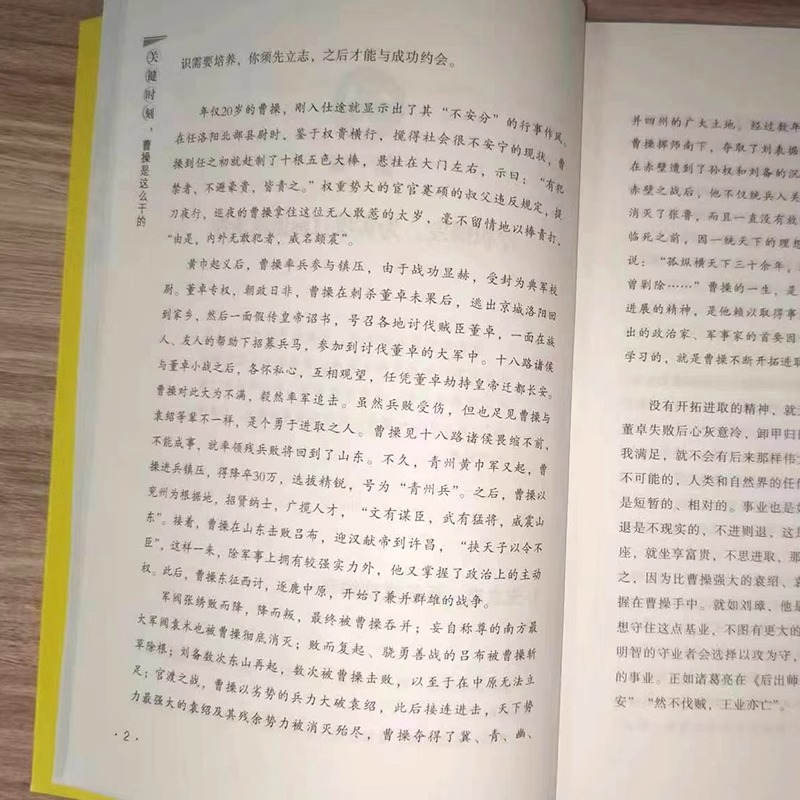 关键时刻，曹操是这么干的
识需要培养，你须先立志，之后才能与成功约会。
年仅20岁的曹操，刚入仕途就显示出了其“不安分”的行事作风。
在任洛阳北部县尉时，鉴于权贵横行，搅得社会很不安宁的现状，曹
操到任之初就赶制了十根五色大棒，悬挂在大门左右，示曰：“有犯
禁者，不避豪贵，皆责之。”权重势大的宦官蹇硕的叔父违反规定，提
刀夜行，巡夜的曹操拿住这位无人敢惹的太岁，毫不留情地以棒责打，
“由是，内外无敢犯者，威名颇震”。
黄巾起义后，曹操率兵参与镇压，由于战功显赫，受封为典军校
尉。董卓专权，朝政日非，曹操在刺杀董卓未果后，逃出京城洛阳回
到家乡，然后一面假传皇帝诏书，号召各地讨伐贼臣董卓，一面在族
人、友人的帮助下招募兵马，参加到讨伐董卓的大军中。十八路诸侯
与董卓小战之后，各怀私心，互相观望，任凭董卓劫持皇帝迁都长安。
曹操对此大为不满，毅然率军追击。虽然兵败受伤，但也足见曹操与
袁绍等辈不一样，是个勇于进取之人。曹操见十八路诸侯畏缩不前，
不能成事，就率领残兵败将回到了山东。不久，青州黄巾军又起，曹
操进兵镇压，得降卒30万，选拔精锐，号为“青州兵”。之后，曹操以
兖州为根据地，招贤纳士，广揽人才，“文有谋臣，武有猛将，威震山
东”。接着，曹操在山东击败吕布，迎汉献帝到许昌，“扶天子以令不
臣”，这样一来，除军事上拥有较强实力外，他又掌握了政治上的主动
权。此后，曹操东征西讨，逐鹿中原，开始了兼并群雄的战争。
军阀张绣败而降，降而叛，最终被曹操吞并；妄自称尊的南方最
大军阀袁术也被曹操彻底消灭；败而复起、骁勇善战的吕布被曹操斩
草除根；刘备数次东山再起，数次被曹操击败，以至于在中原无法立
足；官渡之战，曹操以劣势的兵力大破袁绍，此后接连进击，天下势
力最强大的袁绍及其残余势力被消灭殆尽，曹操夺得了冀、青、幽、
·2·
并四州的广大土地。经过数年
曹操挥师南下，夺取了刘表据
在赤壁遭到了孙权和刘备的沉
赤壁之战后，他不仅统兵入关
消灭了张鲁，而且一直没有放
临死之前，因一统天下的理想
说：“孤纵横天下三十余年，
曾剿除……”曹操的一生，是
进展的精神，是他赖以取得事
出的政治家、军事家的首要因
学习的，就是曹操不断开拓进取
没有开拓进取的精神，就
董卓失败后心灰意冷，卸甲归
我满足，就不会有后来那样伟
不可能的，人类和自然界的任
是短暂的、相对的。事业也是如
退是不现实的，不进则退，这
座，就坐享富贵，不思进取、那
之，因为比曹操强大的袁绍、袁
握在曹操手中。就如刘璋，他是
想守住这点基业，不图有更大的
明智的守业者会选择以攻为守，
的事业。正如诸葛亮在《后出师
安”“然不伐贼，王业亦亡”。